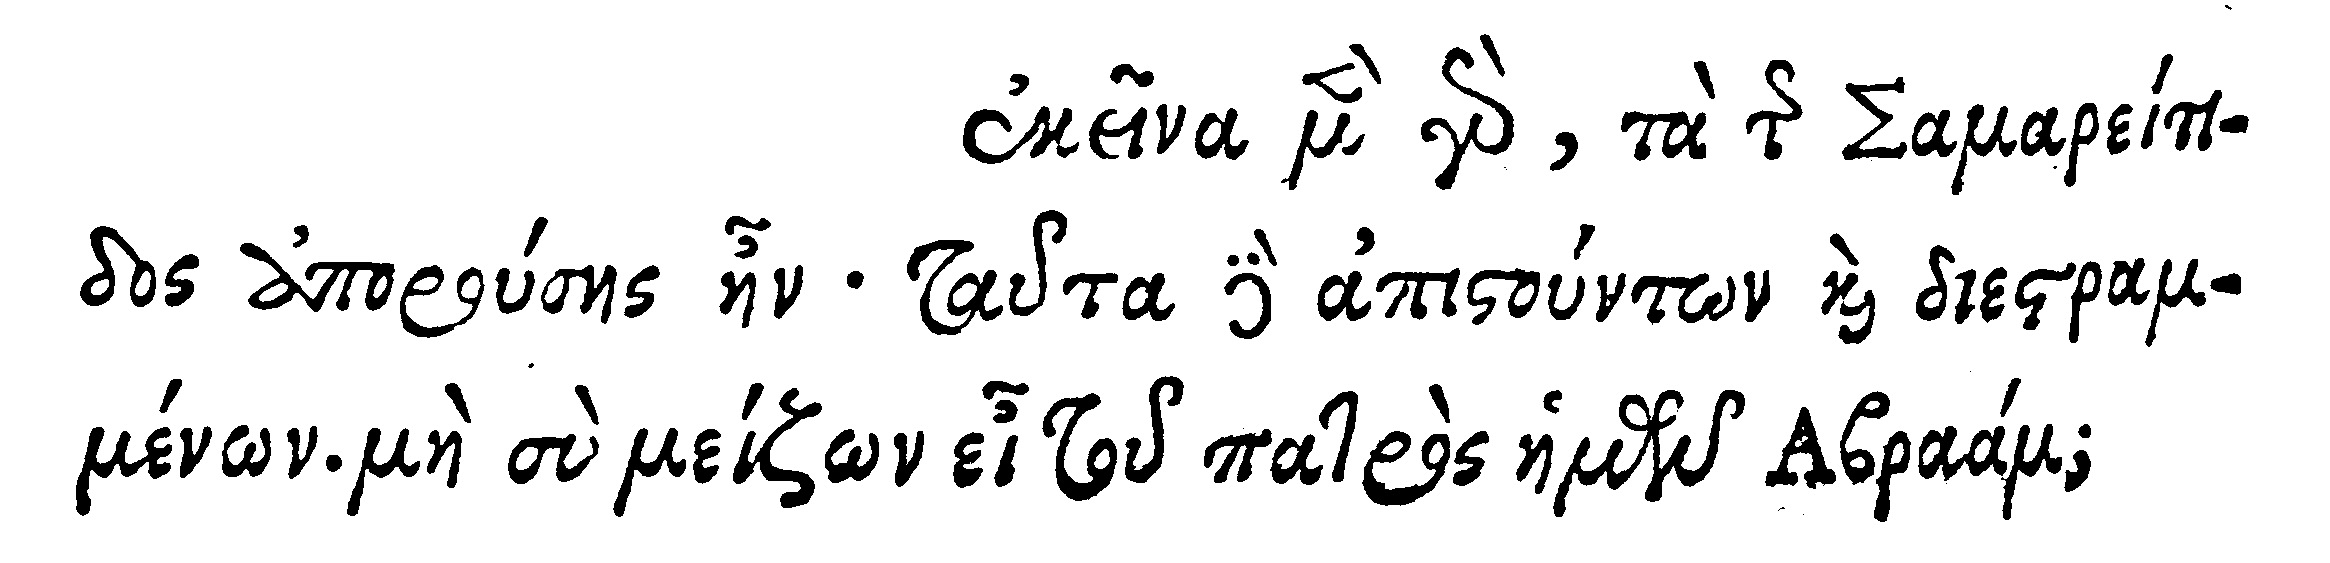 ἐκεῖνα μὲν γὰρ, τὰ τῆς Σαμαρείτι-
δος ἀπορούσης ἦν · ταῦτα δὲ ἀπιστούντων καὶ διεστραμ-
μένων. μὴ σὺ μείζων εἶ τοῦ πατρὸς ἡμῶν Αβραάμ;